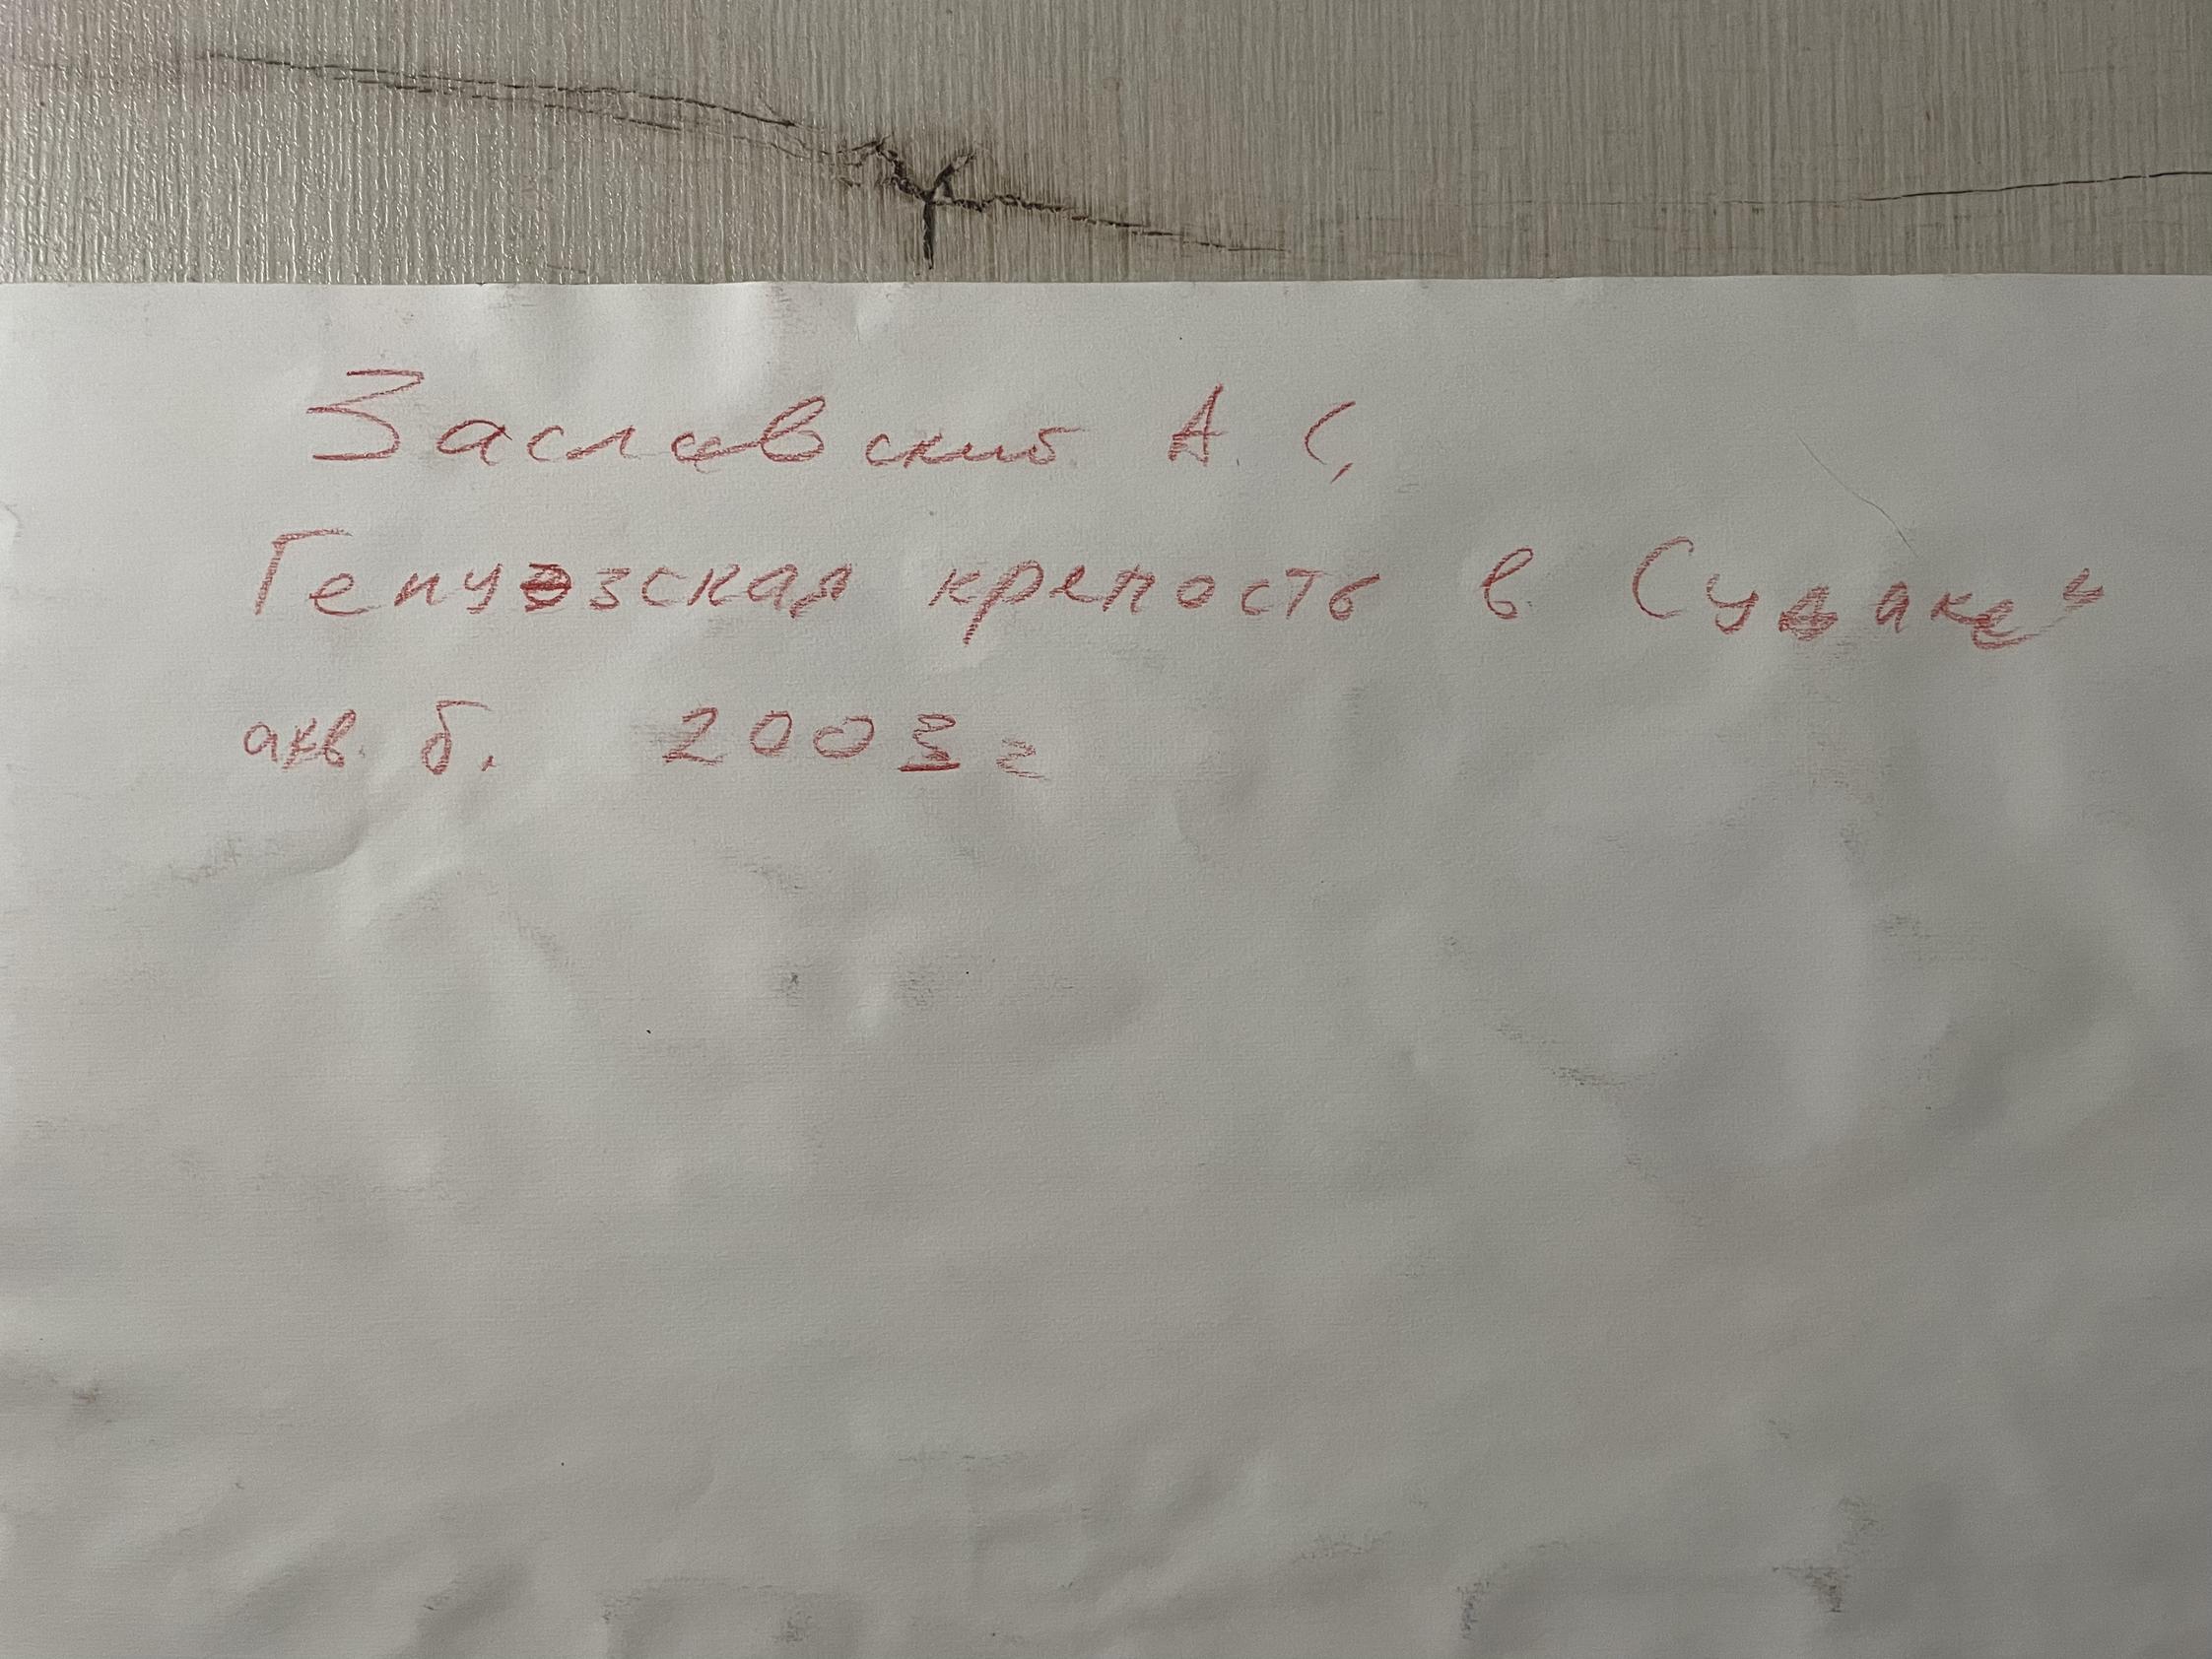 Заславский А. С.
Генуэзская крепость в Судаке"
акв. б. 2003 г